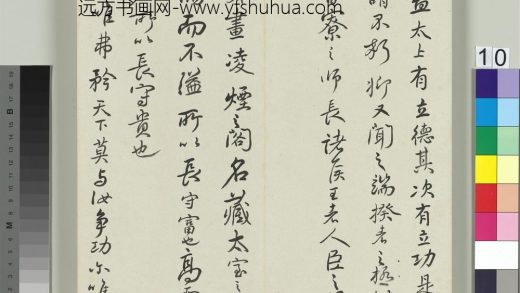 远方书画网-www.yfshuhua.com
10
盖太上有立德其次有立功是
谓不朽抑又闻之端揆者百
寮之师长诸侯王者人臣之
画凌烟之阁名藏太室之
而不溢所以长守富也高而
所以长守贵也
弗矜天下莫与汝争功尔唯